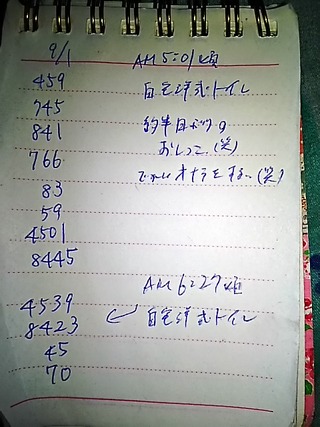 9/1 AM 5:01頃
459 自宅洋式トイレ
745
841 約半日ぶりの
おしっこ(笑)
766 でかいオナラをする(笑)
83
59
4501
8445
AM 6:27頃
4539
8423 自宅洋式トイレ
45
70